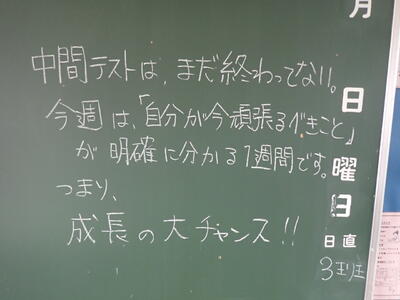 中間テストは、まだ終わってない。
今週は、「自分が今頑張るべきこと」
が明確に分かる1週間です。
つまり、
成長の大チャンス!!
月
日
曜
日
日直